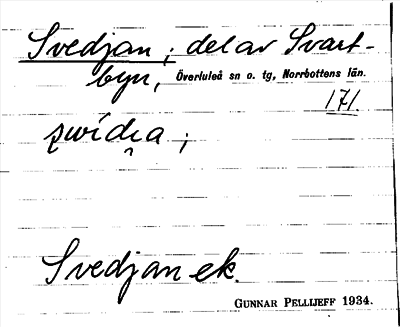 Svedjan ; del av Svart-
byn, Överluleå sn o. tg, Norrbottens län.
171
Svedjan ek.
GUNNAR PELLIJEFF 1934.